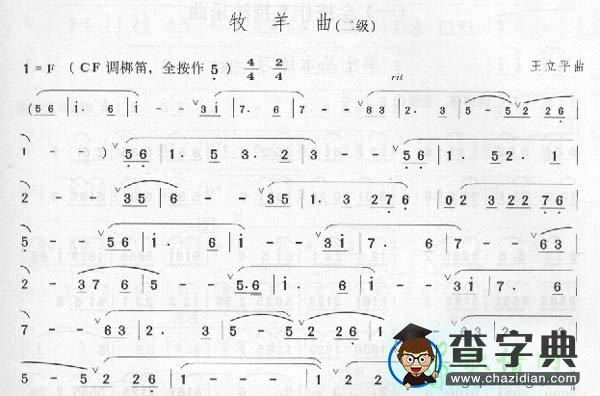 牧 羊 曲(二级)
1 = F ( C F 调梆笛，全按作 5 ) 4/4 2/4 王立平曲
rit
(5 6 | i . 6 | i - - 3 i | 7 . 6 | 7 - - 6 3 | 2 . 3 | 5 - 5 2 2 6 |
1 - - ) 5 6 | 1 . 5 3 . 2 | 3 - - 5 6 | 1 . 5 2 . 1 |
2 - - 3 5 | 6 - - 3 5 | 1 . 3 2 7 6 | 0 2 3 2 2 7 6 |
5 - - 5 6 | i . 6 | i - - 3 i | 7 . 6 | 7 - - 6 3 |
2 - 3 7 6 | 5 - - 5 . 6 | i . 6 | i - - 3 i | 7 . 6 |
7 - - 6 3 | 2 . 3 | 5 - 5 2 2 6 | 1
5 - 5 2 2 6 | 1 - - 5 6 | 1 . 5
查字典
www.chazidian.com